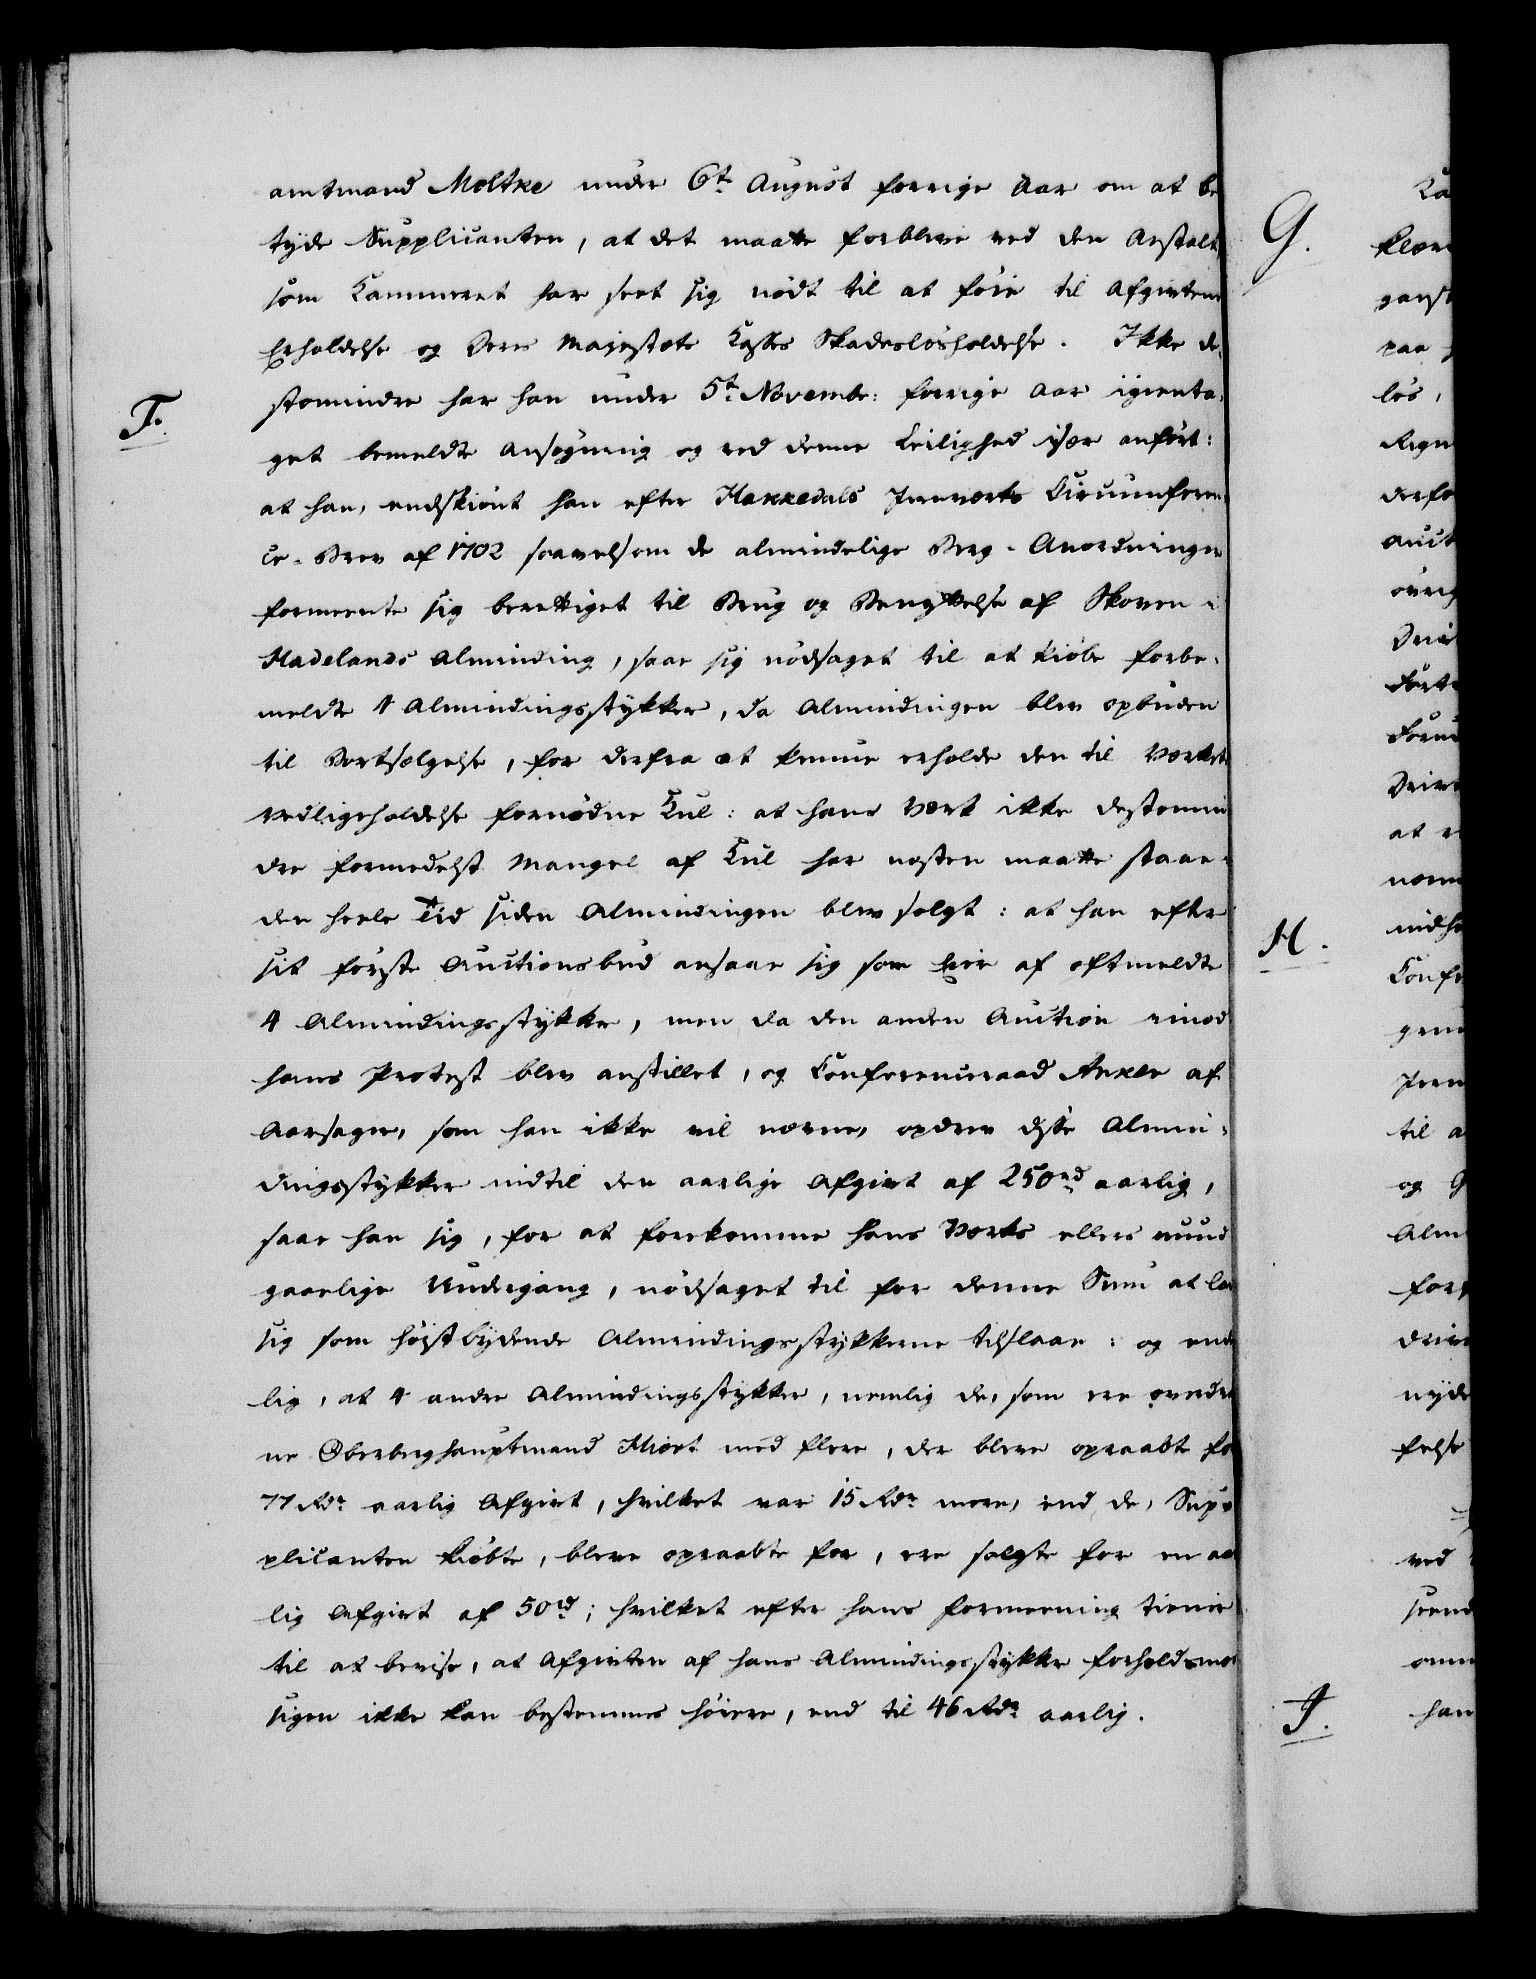 amtmand Moltke under 6t August forrige Aar om at be
tyde Supplicanten, at det maatte forblive ved den Anstalt,
som Kammeret har seet sig nødt til at føie til Afgivtens
Erholdelse og Deres Majestæts Kasses Skadesløsholdelse. Ikke de-
F.
stomindre har han under 5t Novembr: forrige Aar igienta-
get bemeldte Ansøgning og ved denne Leilighed især anført:
at han, endskiønt han efter Hakkedals Jernværks Circumferen-
ce-Brev af 1702 saavelsom de almindelige Berg-Anordninger
formeente sig berettiget til Brug og Benyttelse af Skoven i
Hadelands Alminding, saae sig nødsaget til at kiøbe forbe-
meldte 4 Almindingsstykker, da Almindingen blev opbuden
til Bortsælgelse, for derfra at kunne erholde den til Værkets
Vedligeholdelse fornødne Kul: at hans Værk ikke destomin
dre formedelst Mangel af Kul har næsten maatte staae
den heele Tid siden Almindingen blev solgt: at han efter
sit første Auctionsbud ansaae sig som Eier af oftmeldte
4 Almindingsstykker, men da den anden Auction imod
hans Protest blev anstillet, og Conferenceraad Anker af
Aarsager, som han ikke vil nævne, opdrev disse Almin-
dingsstykker indtil den aarlige Afgivt af 250rd aarlig,
saae han sig, for at forekomme hans Værks ellers uund
gaaelige Undergang, nødsaget til for denne Sum at lade
sig som høistbydende Almindingsstykkerne tilslaae: og ende
lig, at 4 andre Almindingsstykker, nemlig de, som ere overdrag
ne Oberberghauptmand Hiort med flere, der bleve opraabte for
77 Rdr aarlig Afgivt, hvilket var 15 Rdr mere, end de, Sup-
plicanten kiøbte, bleve opraabte for, ere solgte for en aar
lig Afgivt af 50rd; hvilket efter hans Formeening tiener
til at bevise, at Afgivten af hans Almindingsstykker forholdsmæs
sigen ikke kan bestemmes høiere, end til 46 Rdr aarlig.
G.
H.
J.